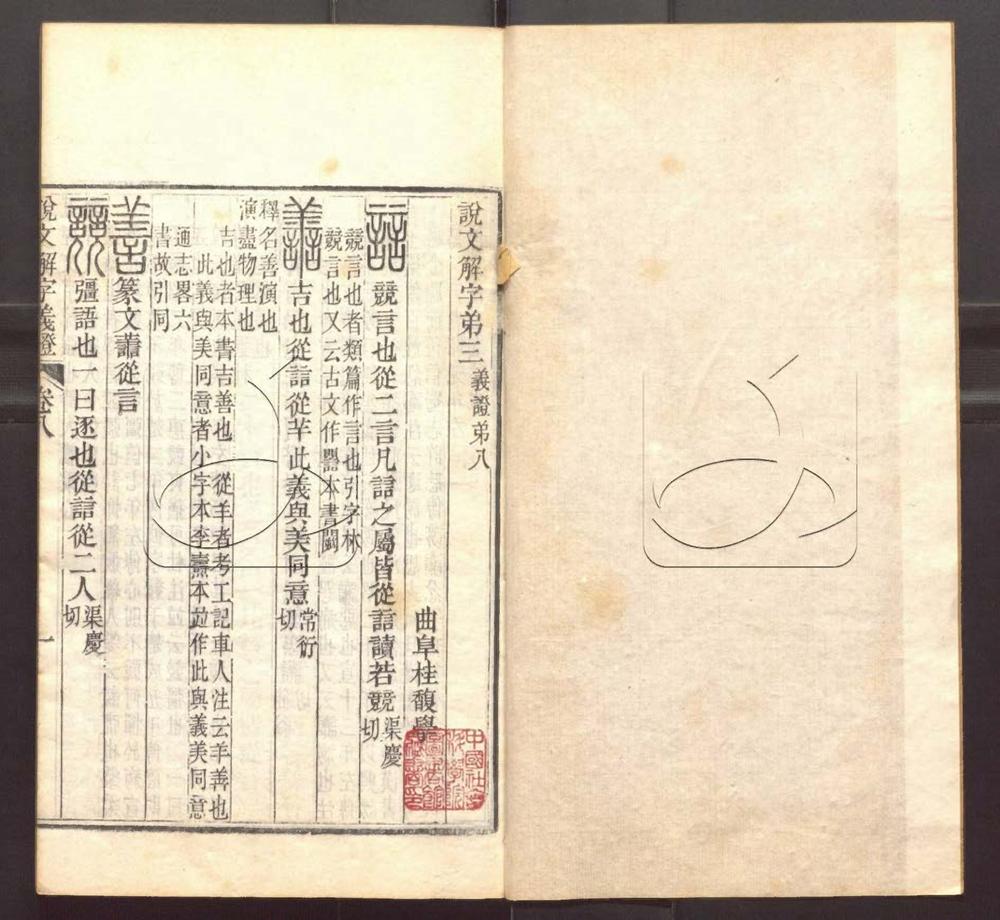 說文解字弟三 義證弟八
曲阜桂馥學
誩 競言也從二言凡誩之屬皆從誩讀若競 渠慶切
競言也者類篇作言也引字林
競言也又云古文作𧮦本書闕
譱 吉也從誩從羊此義與美同意 常衍切
釋名善演也
演盡物理也
吉也者本書吉善也 從羊者考工記車人注云羊善也
此義與美同意者小字本李燾本竝作此與義美同意
通志畧六
書故引同
善 篆文譱從言
競 彊語也一曰逐也從誩從二人 渠慶切
說文解字義證 卷八 一